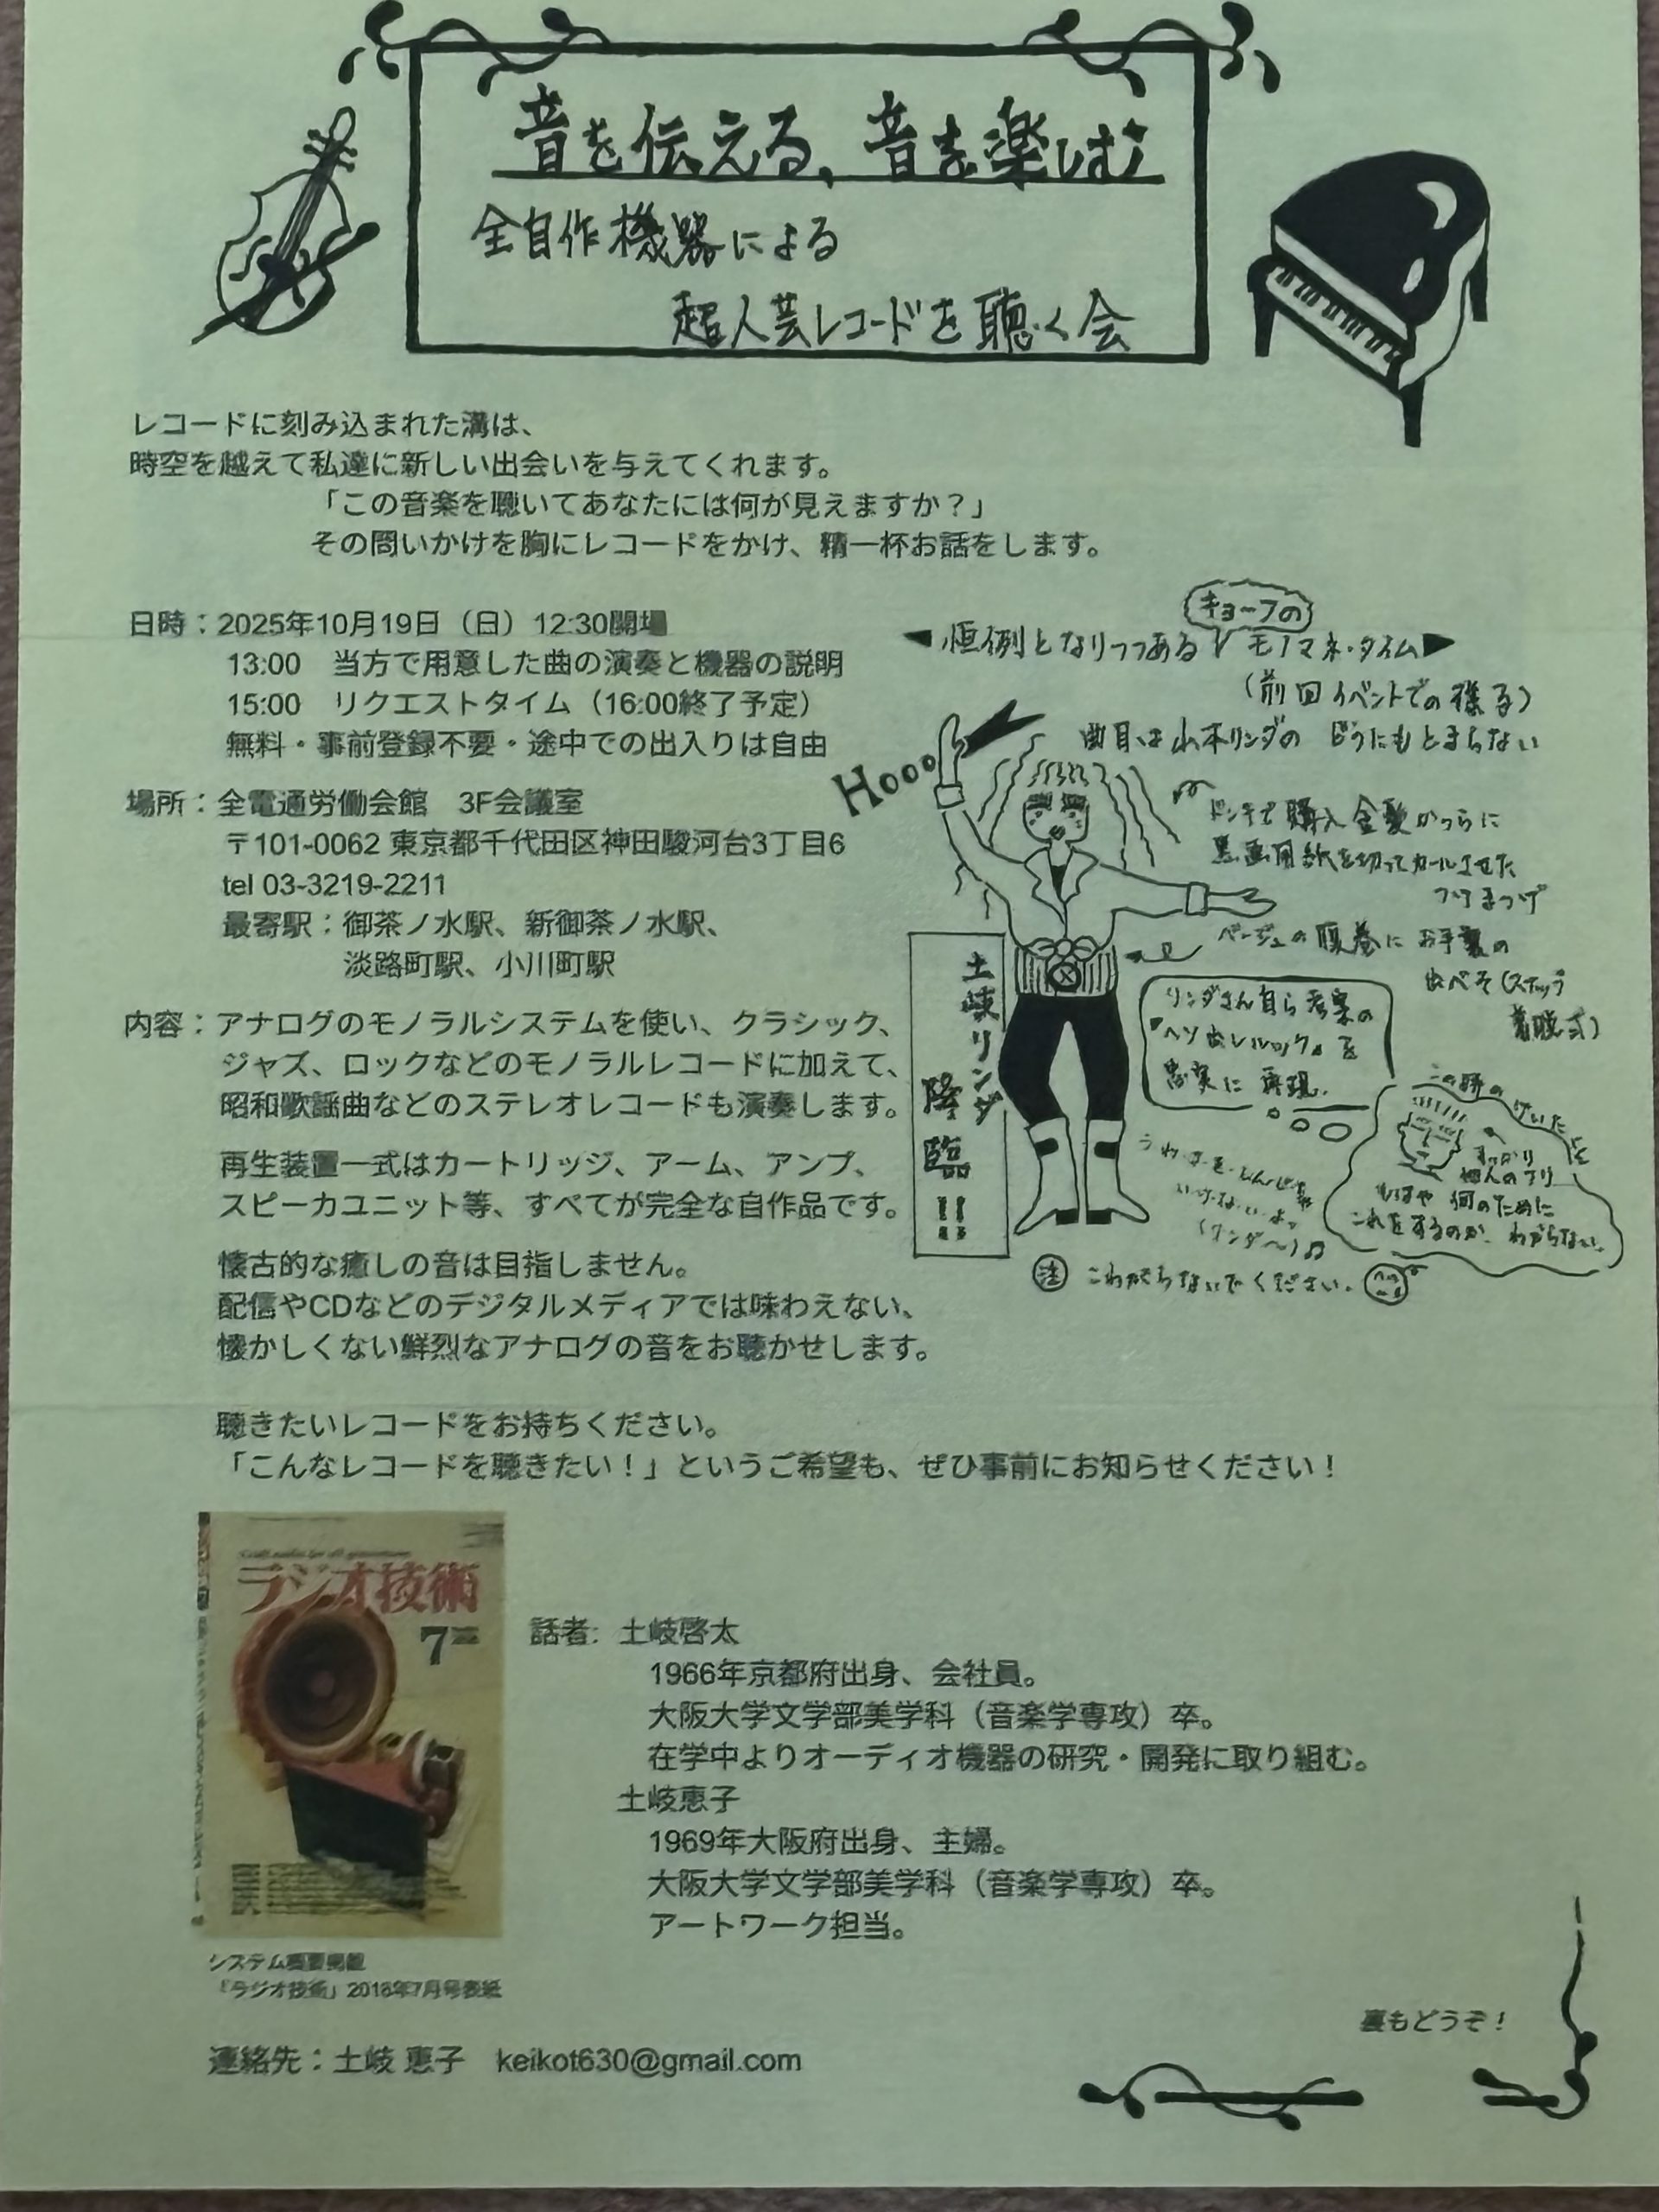 音を伝える、音を楽しむ
全自作機器による
超人芸レコードを聴く会
レコードに刻み込まれた溝は、
時空を越えて私達に新しい出会いを与えてくれます。
「この音楽を聴いてあなたには何が見えますか？」
その問いかけを胸にレコードをかけ、精一杯お話をします。
日時：2025年10月19日（日）12:30開場
13:00　当方で用意した曲の演奏と機器の説明
15:00　リクエストタイム（16:00終了予定）
無料・事前登録不要・途中での出入りは自由
場所：全電通労働会館　3F会議室
〒101-0062 東京都千代田区神田駿河台3丁目6
tel 03-3219-2211
最寄駅：御茶ノ水駅、新御茶ノ水駅、
淡路町駅、小川町駅
内容：アナログのモノラルシステムを使い、クラシック、
ジャズ、ロックなどのモノラルレコードに加えて、
昭和歌謡曲などのステレオレコードも演奏します。
再生装置一式はカートリッジ、アーム、アンプ、
スピーカユニット等、すべてが完全な自作品です。
懐古的な癒しの音は目指しません。
配信やCDなどのデジタルメディアでは味わえない、
懐かしくない鮮烈なアナログの音をお聴かせします。
キョーフの
恒例となりつつある モノマネ・タイム
（前回イベントでの様子）
曲目は山本リンダの どうにもとまらない
Hooo
ドンキで購入金髪かつらに
黒画用紙を切ってカールさせた
つけまつげ
ベージュの腹巻にお手製の
出べそ（スナップ
着脱式）
リンダさん自ら考案の
『ヘソ出しルック』を
忠実に再現.
土岐リンダ
降臨!!
この時のけいたは
すっかり
他人のフリ
もはや 何のために
これをするのか、わからない。
うわさをしんじちゃ
いけないよ
（リンダ〜）♫
注 こわがらないでください.
聴きたいレコードをお持ちください。
「こんなレコードを聴きたい！」というご希望も、ぜひ事前にお知らせください！
ラジオ技術
7
話者: 土岐啓太
1966年京都府出身、会社員。
大阪大学文学部美学科（音楽学専攻）卒。
在学中よりオーディオ機器の研究・開発に取り組む。
土岐恵子
1969年大阪府出身、主婦。
大阪大学文学部美学科（音楽学専攻）卒。
アートワーク担当。
システム概要掲載
「ラジオ技術」2018年7月号表紙
連絡先：土岐 恵子　keikot630@gmail.com
裏もどうぞ！